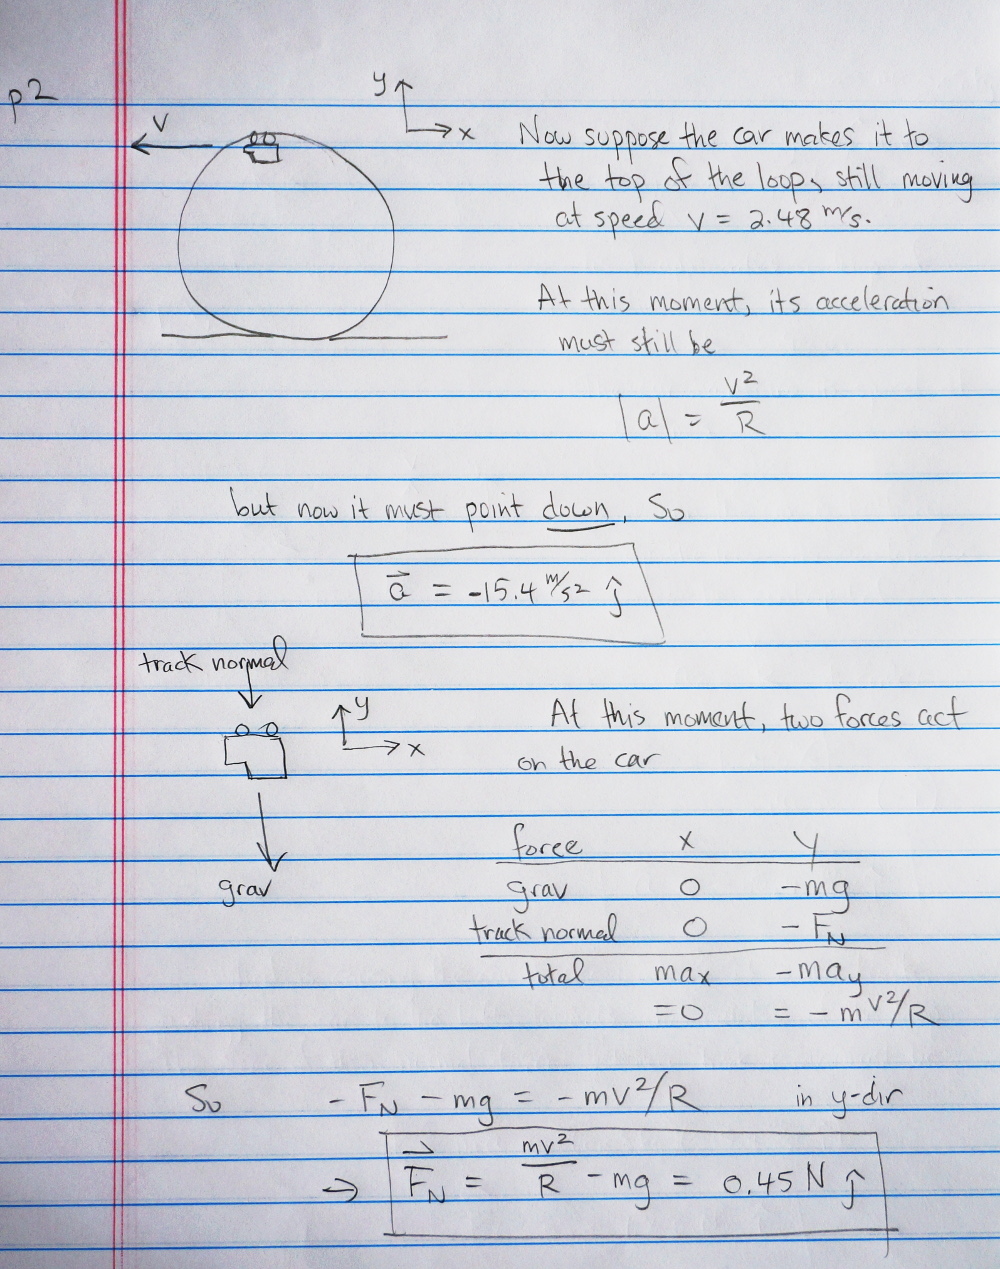 p2
y
x
v
Now suppose the car makes it to
the top of the loop, still moving
at speed v = 2.48 m/s.
At this moment, its acceleration
must still be
|a| = v²/R
but now it must point down. So
a⃗ = -15.4 m/s² ĵ
track normal
y
x
grav
At this moment, two forces act
on the car
force x y
grav 0 -mg
track normal 0 - F_N
total max -may
=0 = - m v²/R
So - F_N - mg = - mv²/R in y-dir
→ F⃗_N = mv²/R - mg = 0.45 N ĵ